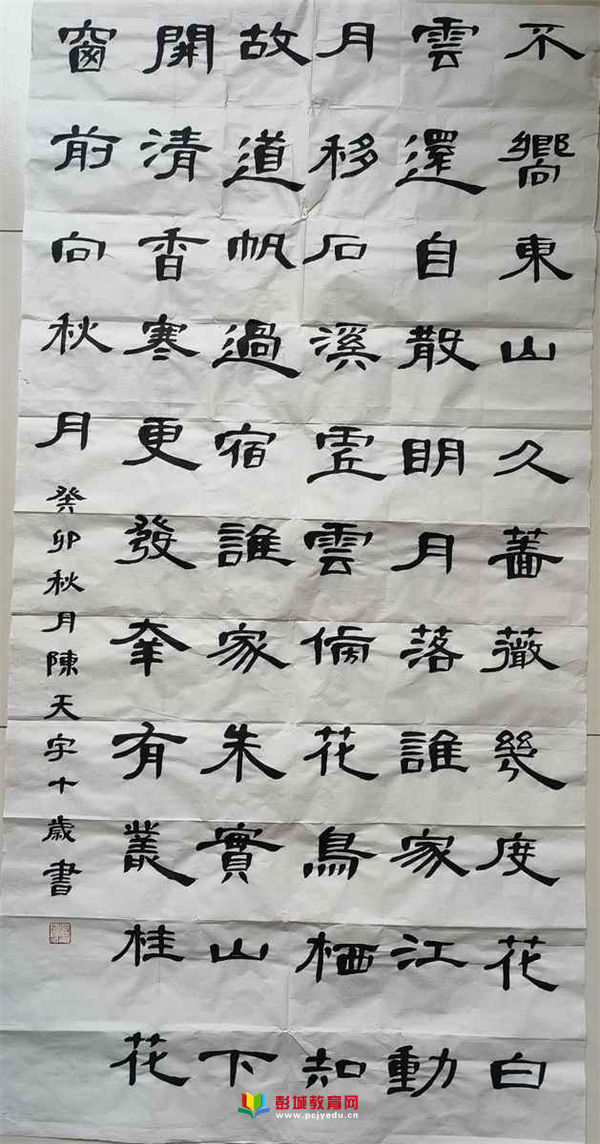 不嚮東山久薔薇幾度花白
雲還自散明月落誰家江動
月移石溪虛雲傍花鳥栖知
故道帆過宿誰家朱實山下
開清香寒更發幸有叢桂花
窗前向秋月
癸卯秋月陳天宇十歲書
彭城教育网
www.pcjyedu.cn